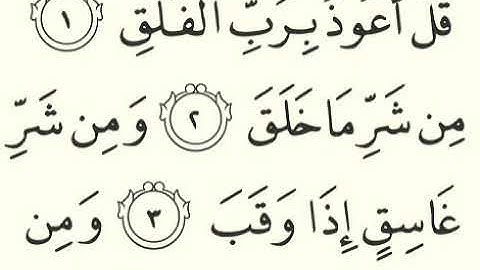 قُلْ أَعُوذُ بِرَبِّ الْفَلَقِ ١
مِن شَرِّ مَا خَلَقَ ٢ وَمِن شَرِّ
غَاسِقٍ إِذَا وَقَبَ ٣ وَمِن